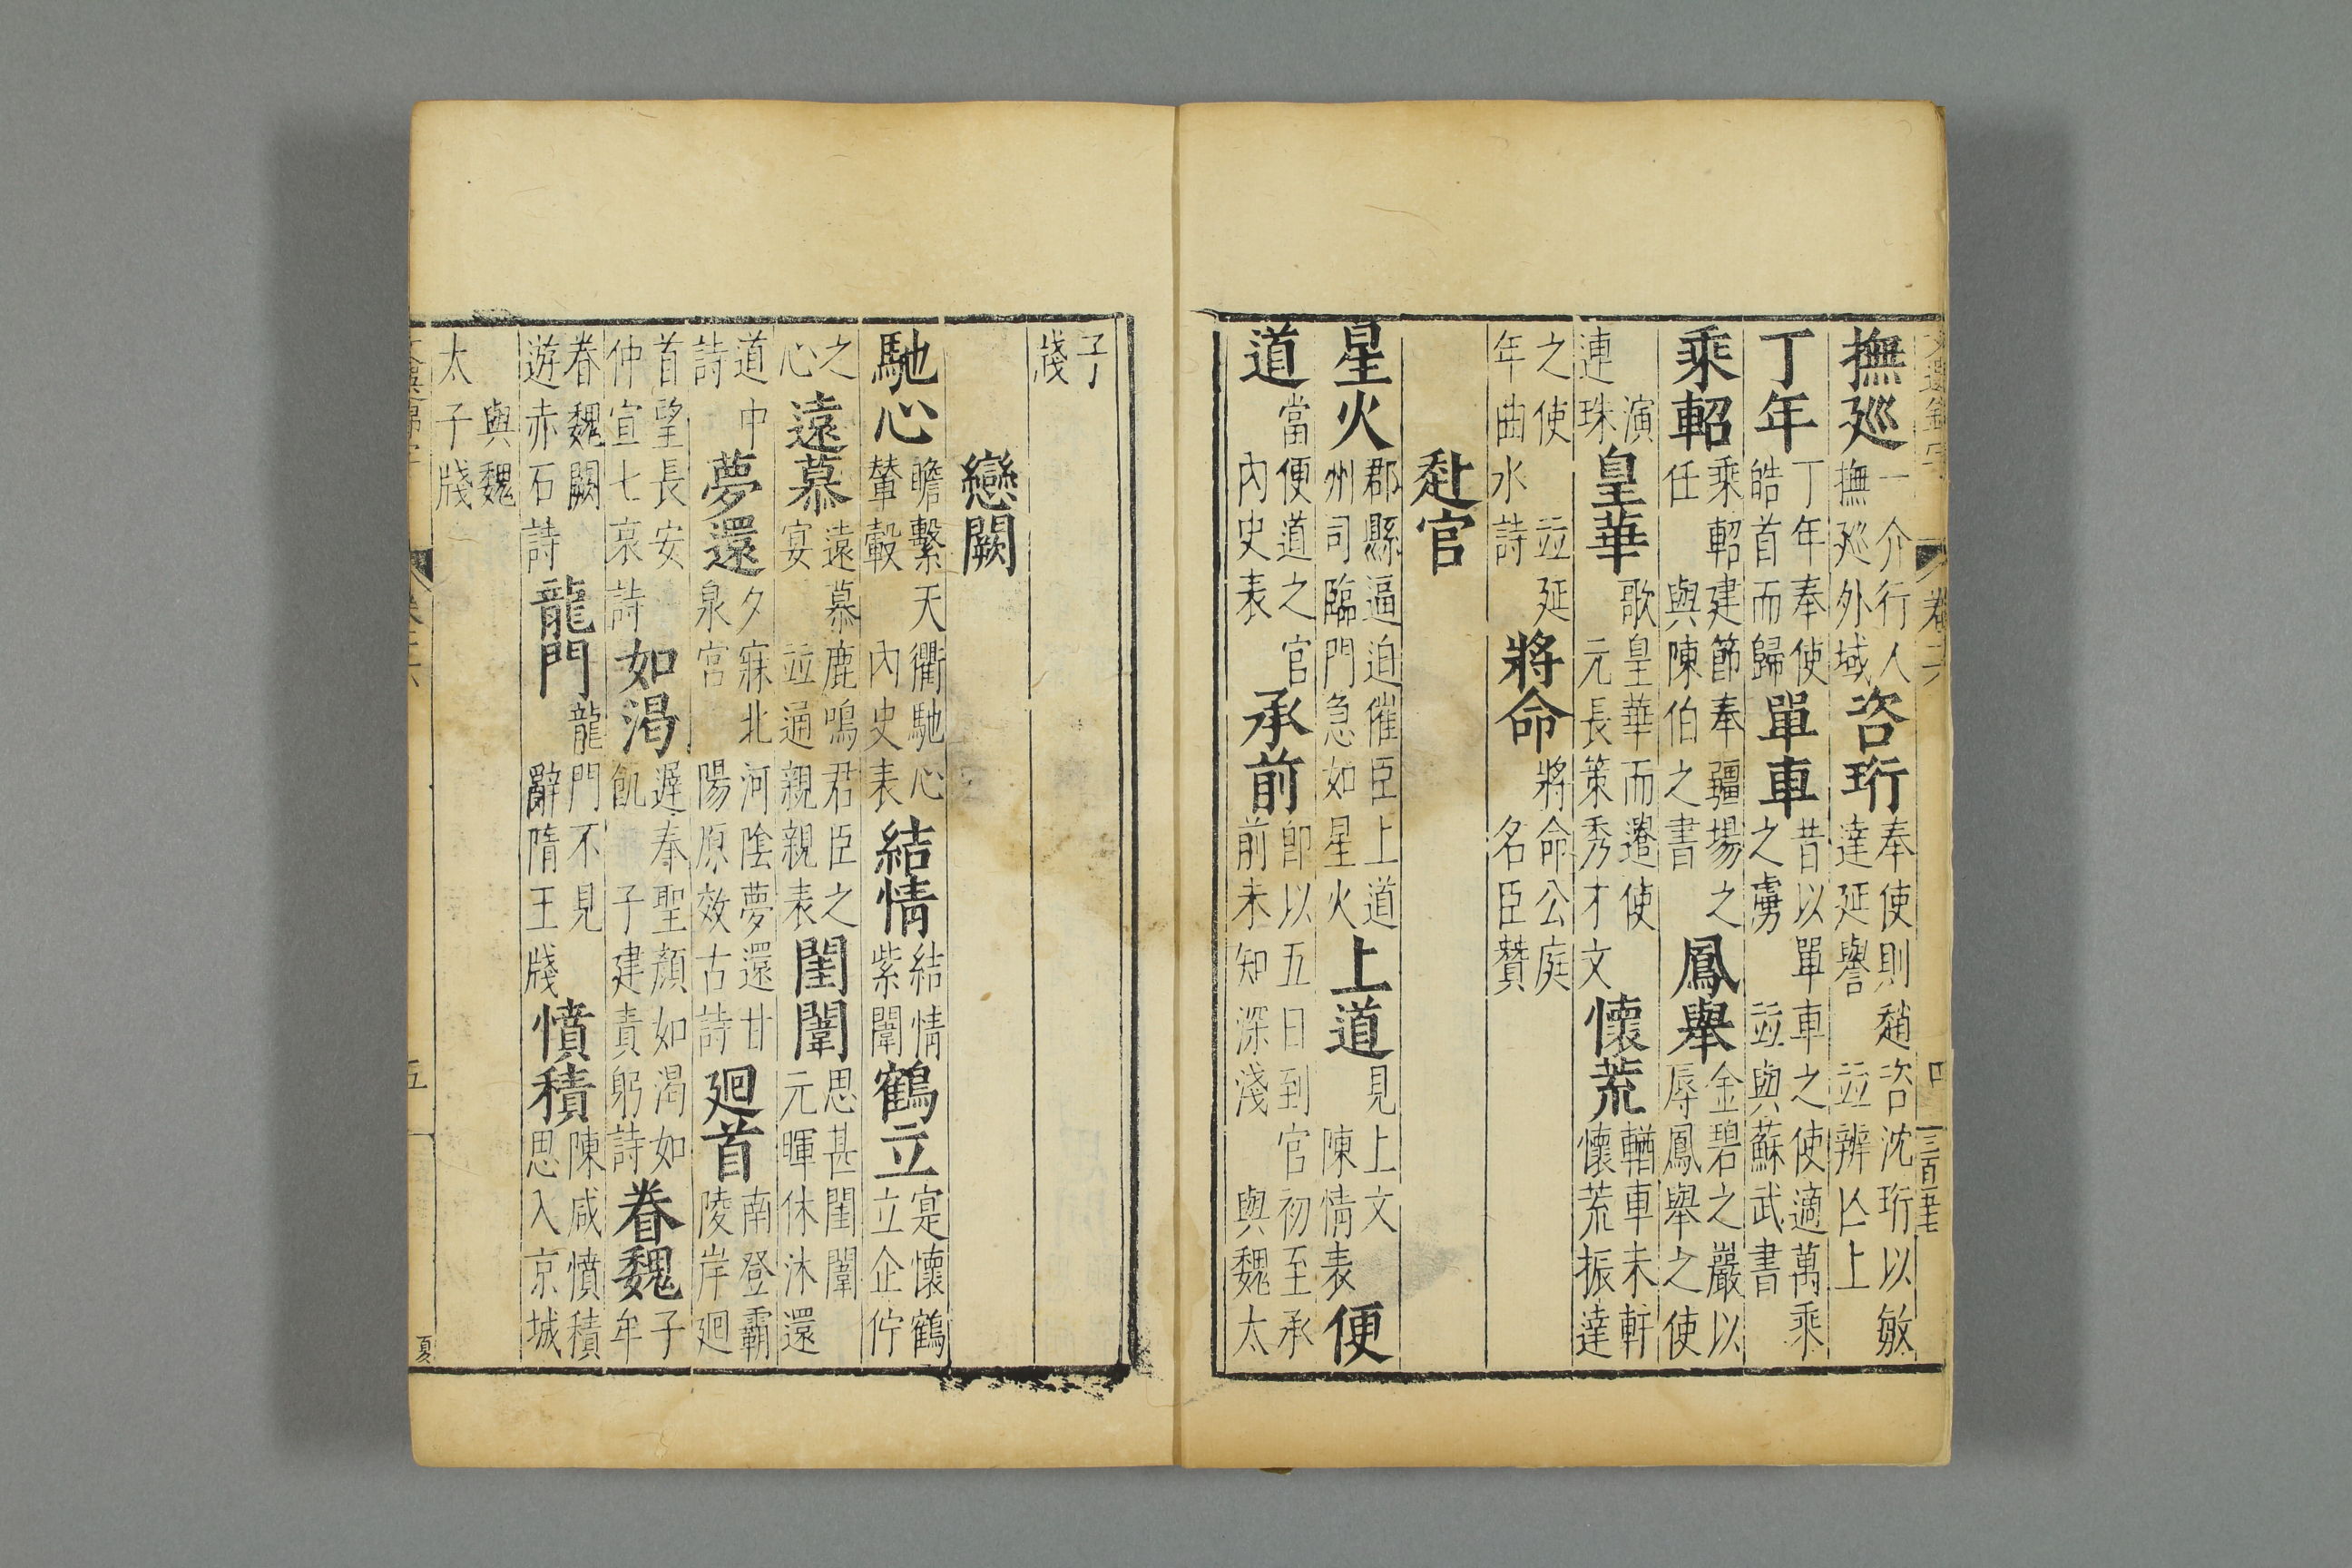 卷六
四
撫巡一介行人撫巡外域咨珩奉使則趙咨沈珩以敏達延譽並辨亾上
丁年丁年奉使皓首而歸單車昔以單車之使適萬乘之虜並與蘇武書
乘軺乘軺建節奉疆場之任與陳伯之書鳳舉金碧之嚴以辱鳳舉之使
演連珠皇華歌皇華而遣使元長策秀才文懷荒輶車未軒懷荒振達
之使並延年曲水詩將命將命公庭名臣贊
赴官
星火郡縣逼迫催臣上道州司臨門急如星火上道見上文陳情表便
道當便道之官內史表承前卽以五日到官初至承前未知深淺與魏太
子牋
戀闕
馳心瞻繫天衢馳心輦轂內史表結情結情紫闥鶴立寔懷鶴立企佇
之心遠慕遠慕鹿鳴君臣之宴並通親親表閨闥思甚閨闥元暉休沐還
道中詩夢還夕寐北河陰夢還甘泉宮陽原效古詩廻首南登霸陵岸廻
首望長安仲宣七哀詩如渴遲奉聖顏如渴如飢子建責躬詩眷魏子牟
眷魏闕遊赤石詩龍門龍門不見辭隋王牋憤積陳咸憤積思入京城
與魏太子牋
五
夏